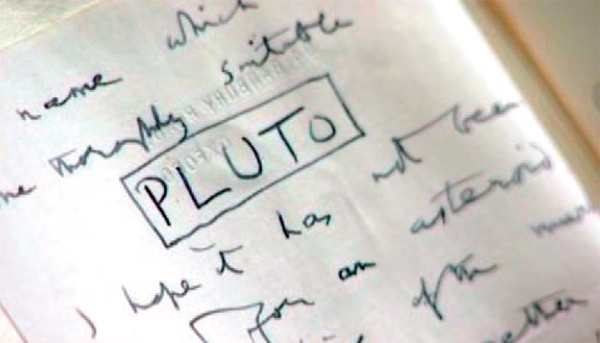 name which
me thoroughly suitable
PLUTO
I hope it has not been
For an asteroid
of the